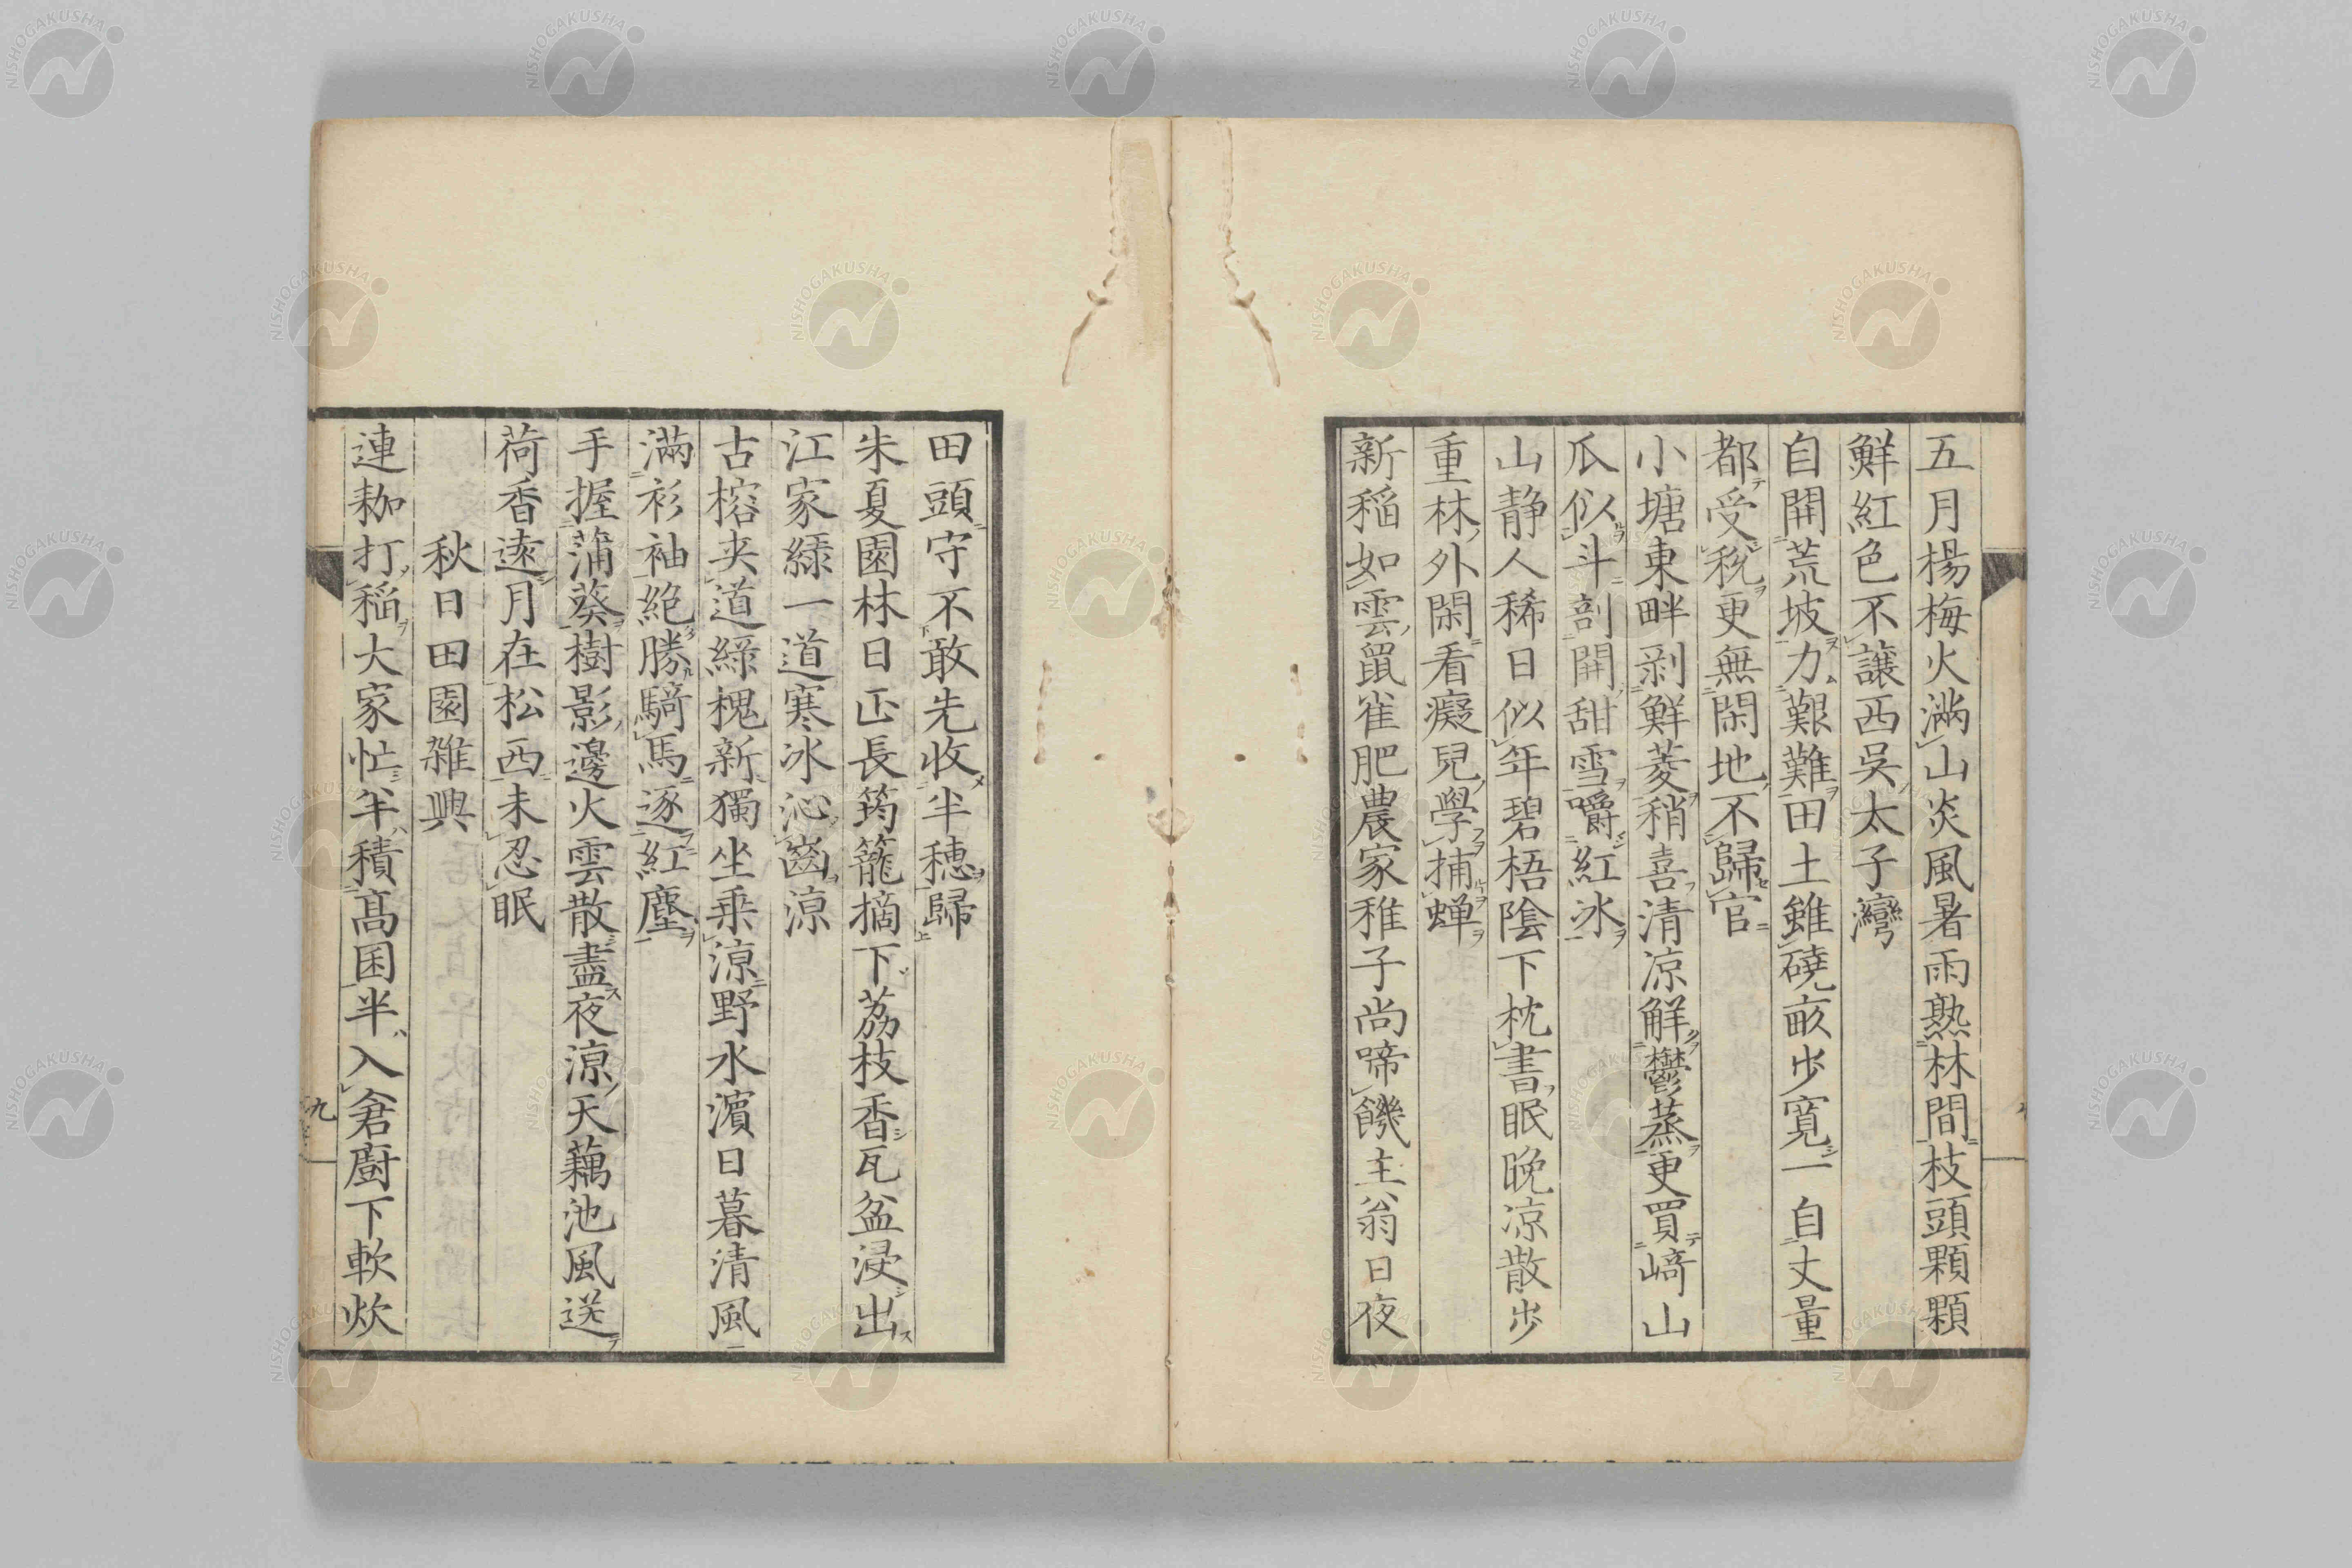 五月楊梅火滿山炎風暑雨熟林間枝頭顆顆
鮮紅色不讓西吳太子灣
自開荒坡力艱難田土雖磽畝步寬一自丈量
都受稅更無閑地不歸官
小塘東畔剥鮮菱稍喜清涼解鬱蒸更買﨑山
瓜似斗剖開甜雪嚼紅冰
山静人稀日似年碧梧陰下枕書眠晚凉散步
重林外閑看癡兒學捕蝉
新稲如雲鼠雀肥農家稚子尚啼饑主翁日夜
田頭守不敢先收半穗歸
朱夏園林日正長筠籠摘下荔枝香瓦盆浸出
江家綠一道寒冰沁齒涼
古榕夹道綠槐新獨坐乗涼野水濵日暮清風
滿衫袖絶勝騎馬逐紅塵
手握蒲葵樹影邊火雲散盡夜涼天藕池風送
荷香遠月在松西未忍眠
秋日田園雑興
連耞打稲大家忙半積髙囷半入倉厨下軟炊
九
NISHOGAKUSHA